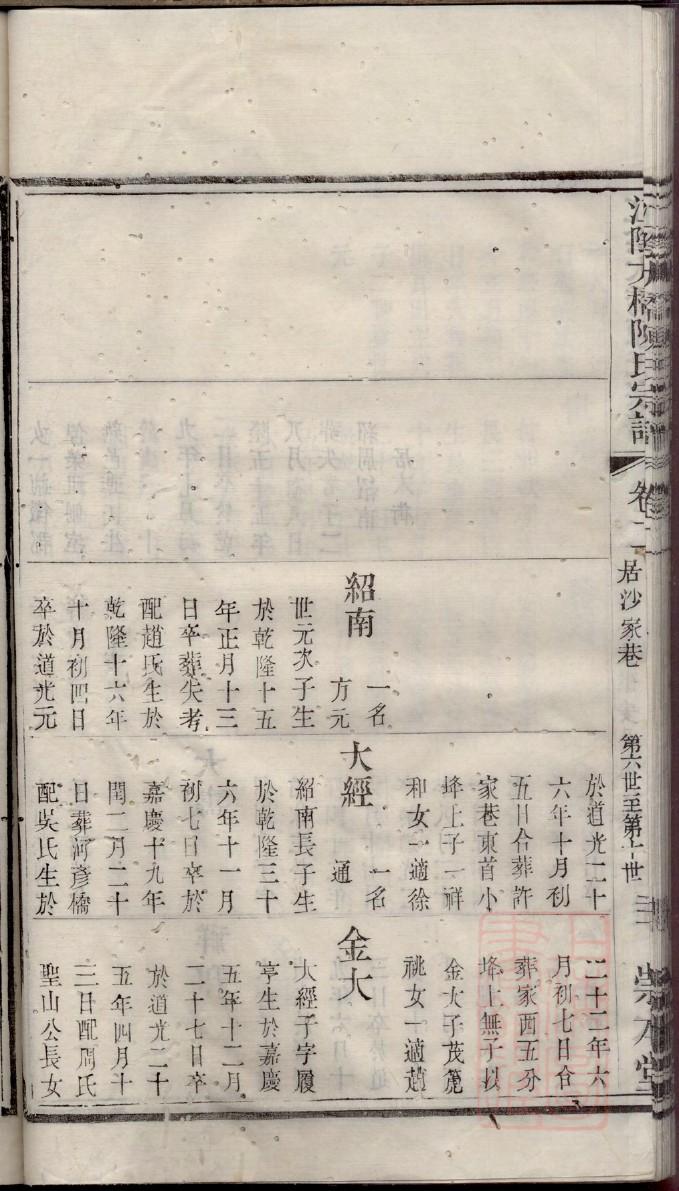 江陰大橋陳氏宗譜
卷二
居沙家巷
第六世至第十世
崇本堂
紹南
一名
方元
世元次子生
於乾隆十五
年正月十三
日卒葬失考
配趙氏生於
乾隆十六年
十月初四日
卒於道光元
於道光二十
六年十月初
五日合葬許
家巷東首小
垾上子一祥
和女一適徐
大經
一名
通
紹南長子生
於乾隆三十
六年十一月
初七日卒於
嘉慶十九年
閏二月二十
日葬河彥橋
配吳氏生於
二十二年六
月初七日合
葬家西五分
垾上無子以
金大子茂箎
祧女一適趙
金大
大經子字履
亨生於嘉慶
五年十二月
二十七日卒
於道光二十
五年四月十
三日配周氏
聖山公長女